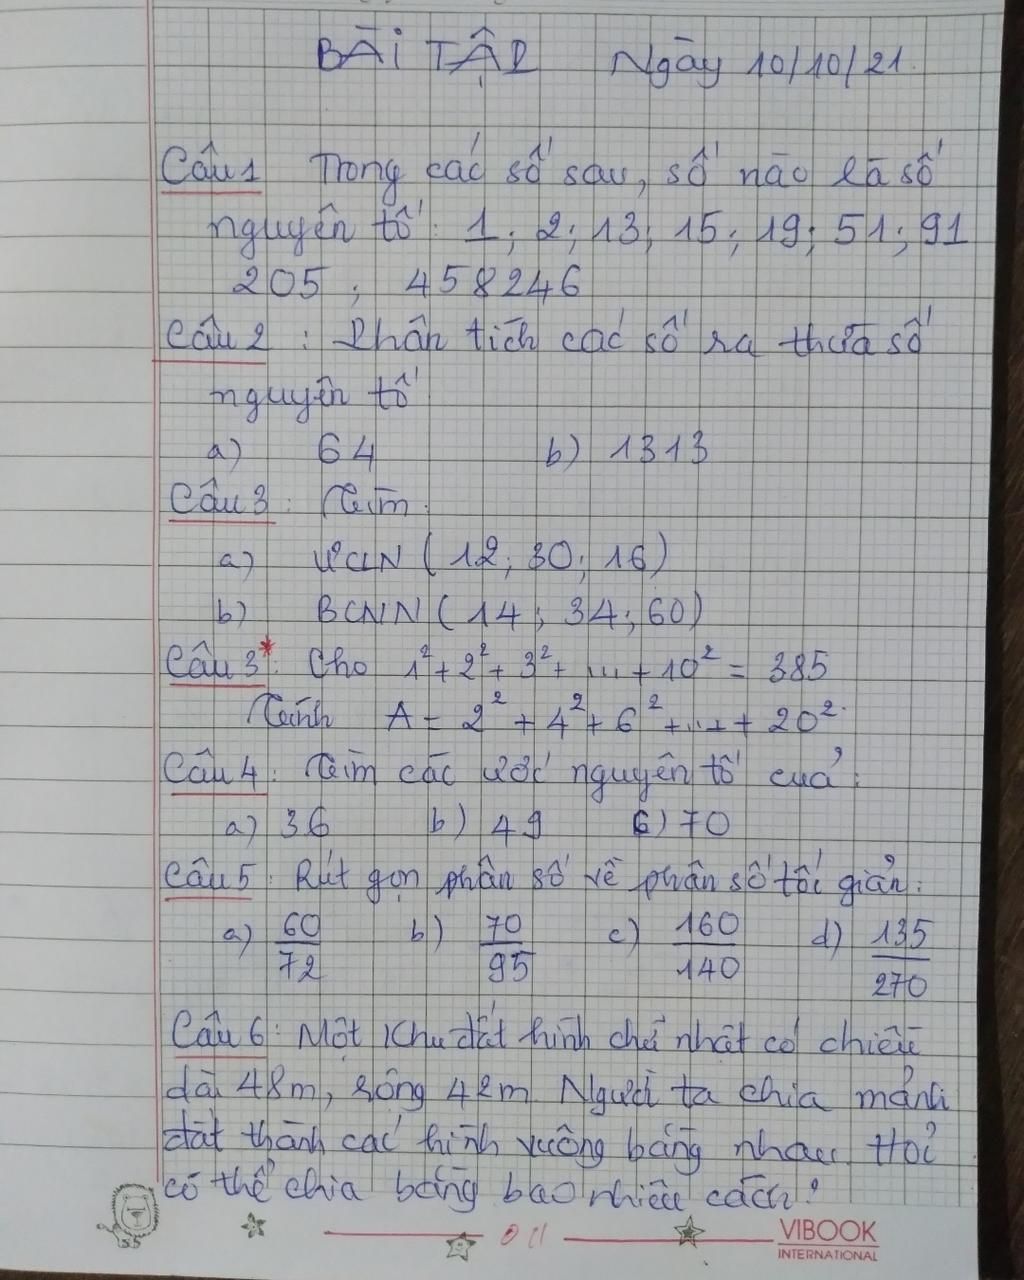 BÀI TẬP Ngày 10/10/21.
Câu 1 Trong các số sau, số nào là số
nguyên tố: 1; 2; 13; 15; 19; 51; 91
205; 458246
Câu 2: Phân tích các số ra thừa số
nguyên tố
a) 64 b) 1313
Câu 3: Tìm:
a) ƯCLN (12; 30; 16)
b) BCNN (14; 34; 60)
Câu 3*: Cho 1² + 2² + 3² + ... + 10² = 385
Tính A = 2² + 4² + 6² + ... + 20².
Câu 4: Tìm các ước nguyên tố của:
a) 36 b) 49 c) 70
Câu 5: Rút gọn phân số về phân số tối giản:
a) 60/72 b) 70/95 c) 160/140 d) 135/270
Câu 6: Một khu đất hình chữ nhật có chiều
dài 48m, rộng 42m. Người ta chia mảnh
đất thành các hình vuông bằng nhau. Hỏi
có thể chia bằng bao nhiêu cách?
VIBOOK
INTERNATIONAL